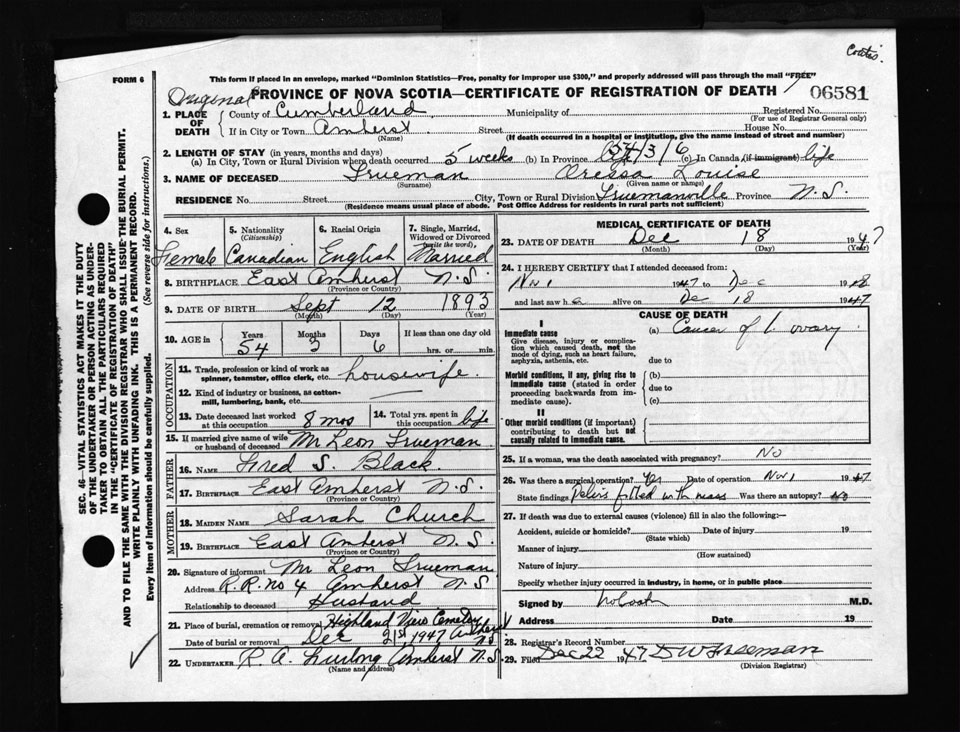 Coates.
FORM 6
This form if placed in an envelope, marked "Dominion Statistics—Free, penalty for improper use $300," and properly addressed will pass through the mail "FREE"
Original PROVINCE OF NOVA SCOTIA—CERTIFICATE OF REGISTRATION OF DEATH 06581
1. PLACE OF DEATH County of Cumberland, Municipality of Registered No.
(For use of Registrar General only)
If in City or Town Amherst. Street House No.
(Name) (If death occurred in a hospital or institution, give the name instead of street and number)
2. LENGTH OF STAY (in years, months and days)
(a) In City, Town or Rural Division where death occurred 5 weeks (b) In Province 54/3/6 (c) In Canada (if immigrant) life
3. NAME OF DECEASED Trueman Oressa Louise
(Surname) (Given name or names)
RESIDENCE No. Street City, Town or Rural Division Truemanville Province N.S.
(Residence means usual place of abode. Post Office Address for residents in rural parts not sufficient)
4. Sex 5. Nationality (Citizenship) 6. Racial Origin 7. Single, Married, Widowed or Divorced (write the word)
Female Canadian English Married
8. BIRTHPLACE East Amherst N.S.
(Province or Country)
9. DATE OF BIRTH Sept 12 1893
(Month) (Day) (Year)
10. AGE in Years Months Days If less than one day old
54 3 6 hrs. or min.
OCCUPATION
11. Trade, profession or kind of work as spinner, teamster, office clerk, etc. housewife.
12. Kind of industry or business, as cotton-mill, lumbering, bank, etc.
13. Date deceased last worked at this occupation 8 mos 14. Total yrs. spent in this occupation life
15. If married give name of wife or husband of deceased Mr Leon Trueman
FATHER
16. NAME Fred S. Black.
17. BIRTHPLACE East Amherst N.S.
(Province or Country)
MOTHER
18. MAIDEN NAME Sarah Church
19. BIRTHPLACE East Amherst N.S.
(Province or Country)
20. Signature of informant Mr Leon Trueman
Address R.R. no 4 Amherst N.S.
Relationship to deceased Husband
21. Place of burial, cremation or removal Highland View Cemetery Amherst N.S.
Date of burial or removal Dec 21st, 1947
22. UNDERTAKER R. A. Furlong Amherst N.S.
(Name and address)
MEDICAL CERTIFICATE OF DEATH
23. DATE OF DEATH Dec 18 1947
(Month) (Day) (Year)
24. I HEREBY CERTIFY that I attended deceased from:
Nov 1 1947 to Dec 18
and last saw h er alive on De 18 1947
CAUSE OF DEATH
I
Immediate cause (a) Cancer of l. ovary.
Give disease, injury or complication which caused death, not the mode of dying, such as heart failure, asphyxia, asthenia, etc. due to
Morbid conditions, if any, giving rise to immediate cause (stated in order proceeding backwards from immediate cause). (b)
due to
(c)
II
Other morbid conditions (if important) contributing to death but not causally related to immediate cause.
25. If a woman, was the death associated with pregnancy? No
26. Was there a surgical operation? Yes Date of operation Nov 1 1947
State findings Pelvis filled with mass Was there an autopsy? No
27. If death was due to external causes (violence) fill in also the following:—
Accident, suicide or homicide? Date of injury 19
(State which)
Manner of injury
(How sustained)
Nature of injury
Specify whether injury occurred in industry, in home, or in public place
Signed by M.D.
Address Date 19
28. Registrar's Record Number
29. Filed Dec 22 1947 D W Freeman
(Division Registrar)
SEC. 46—VITAL STATISTICS ACT MAKES IT THE DUTY
OF THE UNDERTAKER OR PERSON ACTING AS UNDER-
TAKER TO OBTAIN ALL THE PARTICULARS REQUIRED
IN THE "CERTIFICATE OF REGISTRATION OF DEATH"
AND TO FILE THE SAME WITH THE DIVISION REGISTRAR WHO SHALL ISSUE THE BURIAL PERMIT.
WRITE PLAINLY WITH UNFADING INK. THIS IS A PERMANENT RECORD.
Every item of information should be carefully supplied. (See reverse side for instructions.)